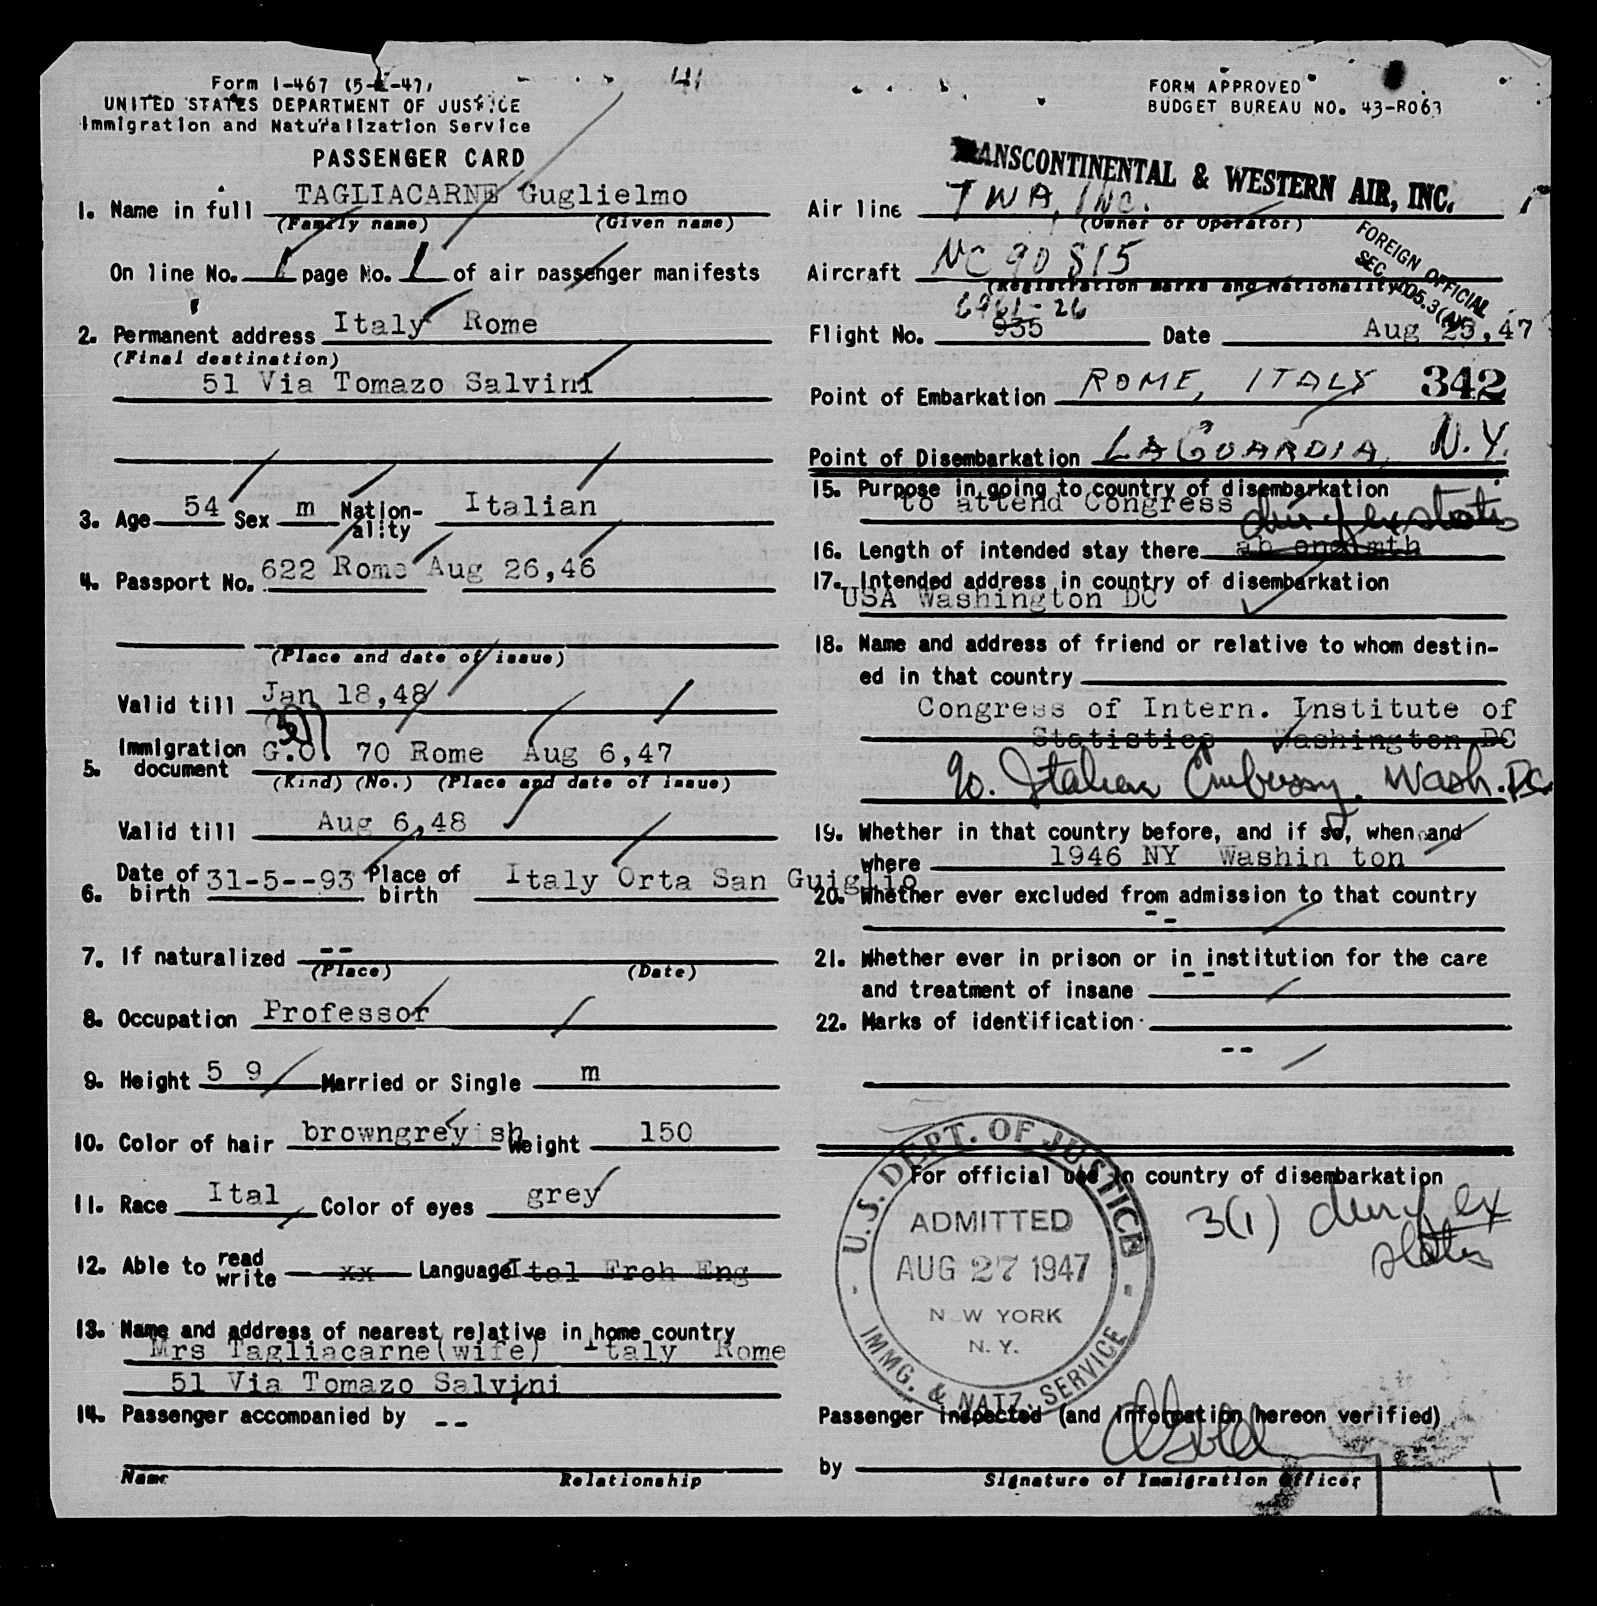 Form I-467 (5-1-47)
UNITED STATES DEPARTMENT OF JUSTICE
Immigration and Naturalization Service
PASSENGER CARD
1. Name in full TAGLIACARNE Guglielmo
(Family name) (Given name)
On line No. 1 page No. 1 of air passenger manifests
2. Permanent address Italy Rome
(Final destination)
51 Via Tomazo Salvini
3. Age 54 Sex m Nation-ality Italian
4. Passport No. 622 Rome Aug 26,46
(Place and date of issue)
Valid till Jan 18,48
5. Immigration document G.O. 70 Rome Aug 6,47
(Kind) (No.) (Place and date of issue)
Valid till Aug 6,48
6. Date of birth 31-5--93 Place of birth Italy Orta San Guiglio
7. If naturalized --
(Place) (Date)
8. Occupation Professor
9. Height 5 9 Married or Single m
10. Color of hair browngreyish Weight 150
11. Race Ital Color of eyes grey
12. Able to read write xx Language Ital Frch Eng
13. Name and address of nearest relative in home country
Mrs Tagliacarne(wife) Italy Rome
51 Via Tomazo Salvini
14. Passenger accompanied by --
Name Relationship
FORM APPROVED
BUDGET BUREAU NO. 43-R063
TRANSCONTINENTAL & WESTERN AIR, INC.
Air line TWA, INC.
(Owner or Operator)
FOREIGN OFFICIAL
Aircraft NC 90815
(Registration marks and Nationality)
6961-26
Flight No. 935 Date Aug 25,47
Point of Embarkation ROME, ITALY 342
Point of Disembarkation LAGUARDIA, N.Y.
15. Purpose in going to country of disembarkation
to attend Congress
dur. of ex status
16. Length of intended stay there ab one mth
17. Intended address in country of disembarkation
USA Washington DC
18. Name and address of friend or relative to whom destin-
ed in that country
Congress of Intern. Institute of
Statistics Washington DC
% Italian Embassy. Wash. D.C.
19. Whether in that country before, and if so, when and
where 1946 NY Washin ton
20. Whether ever excluded from admission to that country
--
21. Whether ever in prison or in institution for the care
and treatment of insane --
22. Marks of identification
--
For official use in country of disembarkation
U.S. DEPT. OF JUSTICE
ADMITTED
AUG 27 1947
NEW YORK
N. Y.
IMMG. & NATZ. SERVICE
3(1) dur of ex
status
Passenger inspected (and information hereon verified)
by
Signature of Immigration Officer